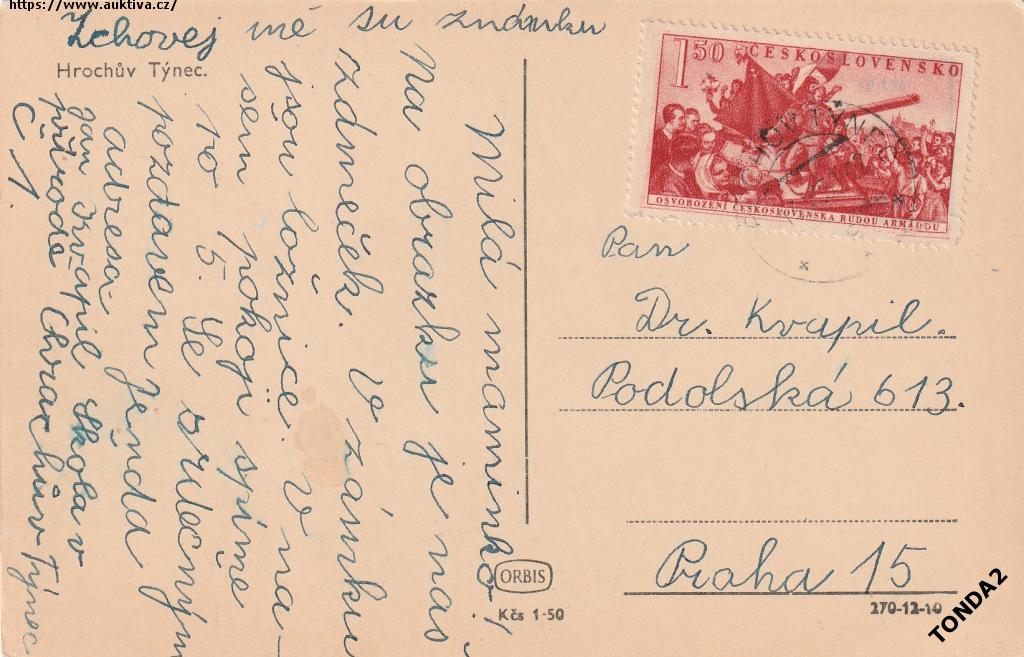 https://www.auktiva.cz/
Zchovej mé su známku
Hrochův Týnec.
Milá maminko!
Na obrazku je náš
zámneček. V zámku
jsou ložnice. V na-
šem pokoji spíme
10 5. Se srdečným
pozdavem Jenda
adresa
Jan Kvapil škola v
přírodě Chrast Hrochův Týnec
Č 1
1 50 ČESKOSLOVENSKO
OSVOBOZENÍ ČESKOSLOVENSKA RUDOU ARMÁDOU
HROCHŮV TÝNEC
Pan
Dr. Kvapil.
Podolská 613.
Praha 15
ORBIS
Kčs 1·50
270-12-10
TONDA2